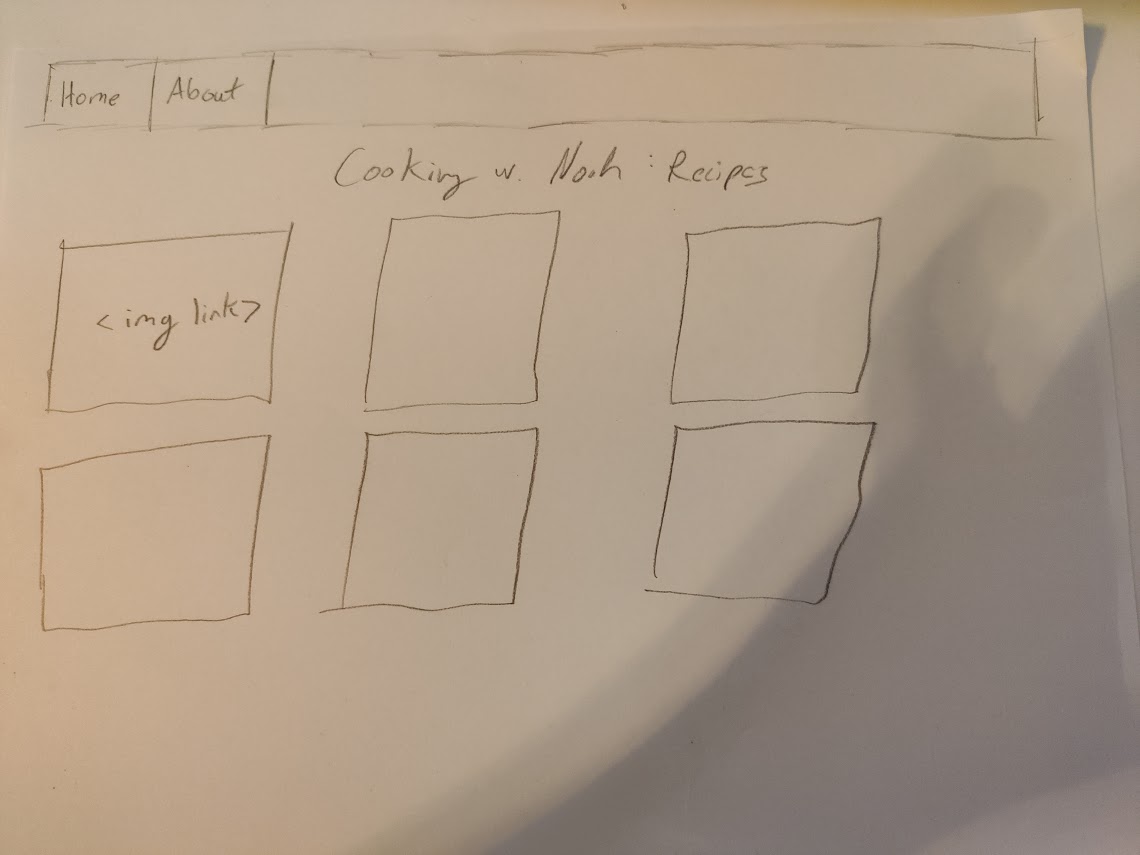 Home About
Cooking w. Noah : Recipes
<img link>